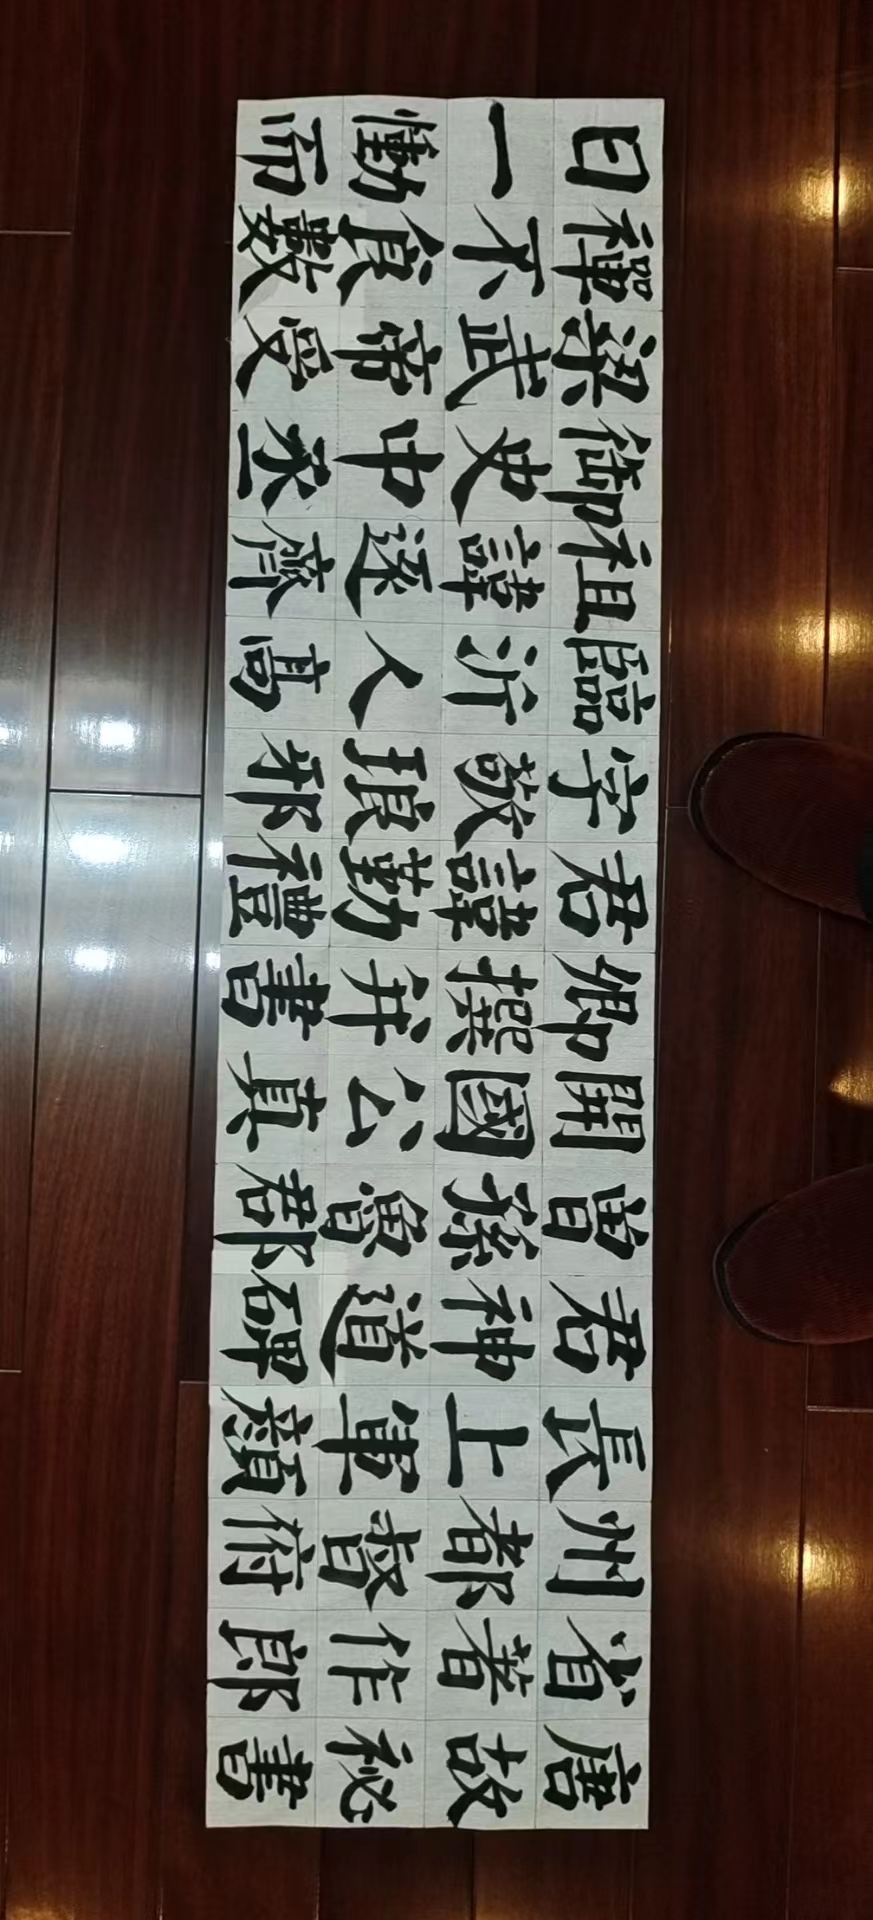 唐故秘書
省著作郎
州都督府
長上軍顏
君神道碑
曾孫魯郡
開國公真
卿撰并書
君諱勤禮
字敬琅邪
臨沂人高
祖諱逐齊
御史中丞
梁武帝受
禪不食數
日一慟而